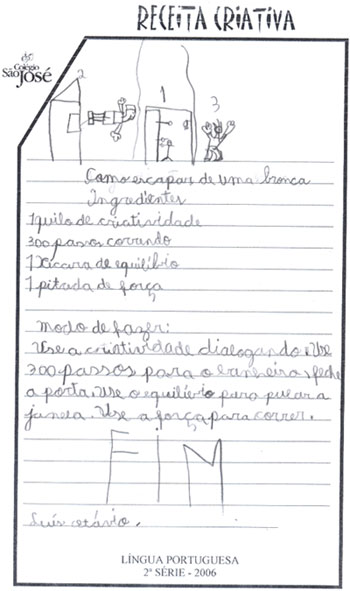 RECEITA CRIATIVA
Colégio
São José
2
1
3
Como escapar de uma bronca
Ingredientes
1 quilo de criatividade
300 passos correndo
1 xícara de equilíbrio
1 pitada de força
Modo de fazer:
Use a criatividade dialogando. Use
300 passos para o banheiro, feche
a porta. Use o equilíbrio para pular a
janela. Use a força para correr.
FIM
Luís otávio.
LÍNGUA PORTUGUESA
2ª SÉRIE - 2006